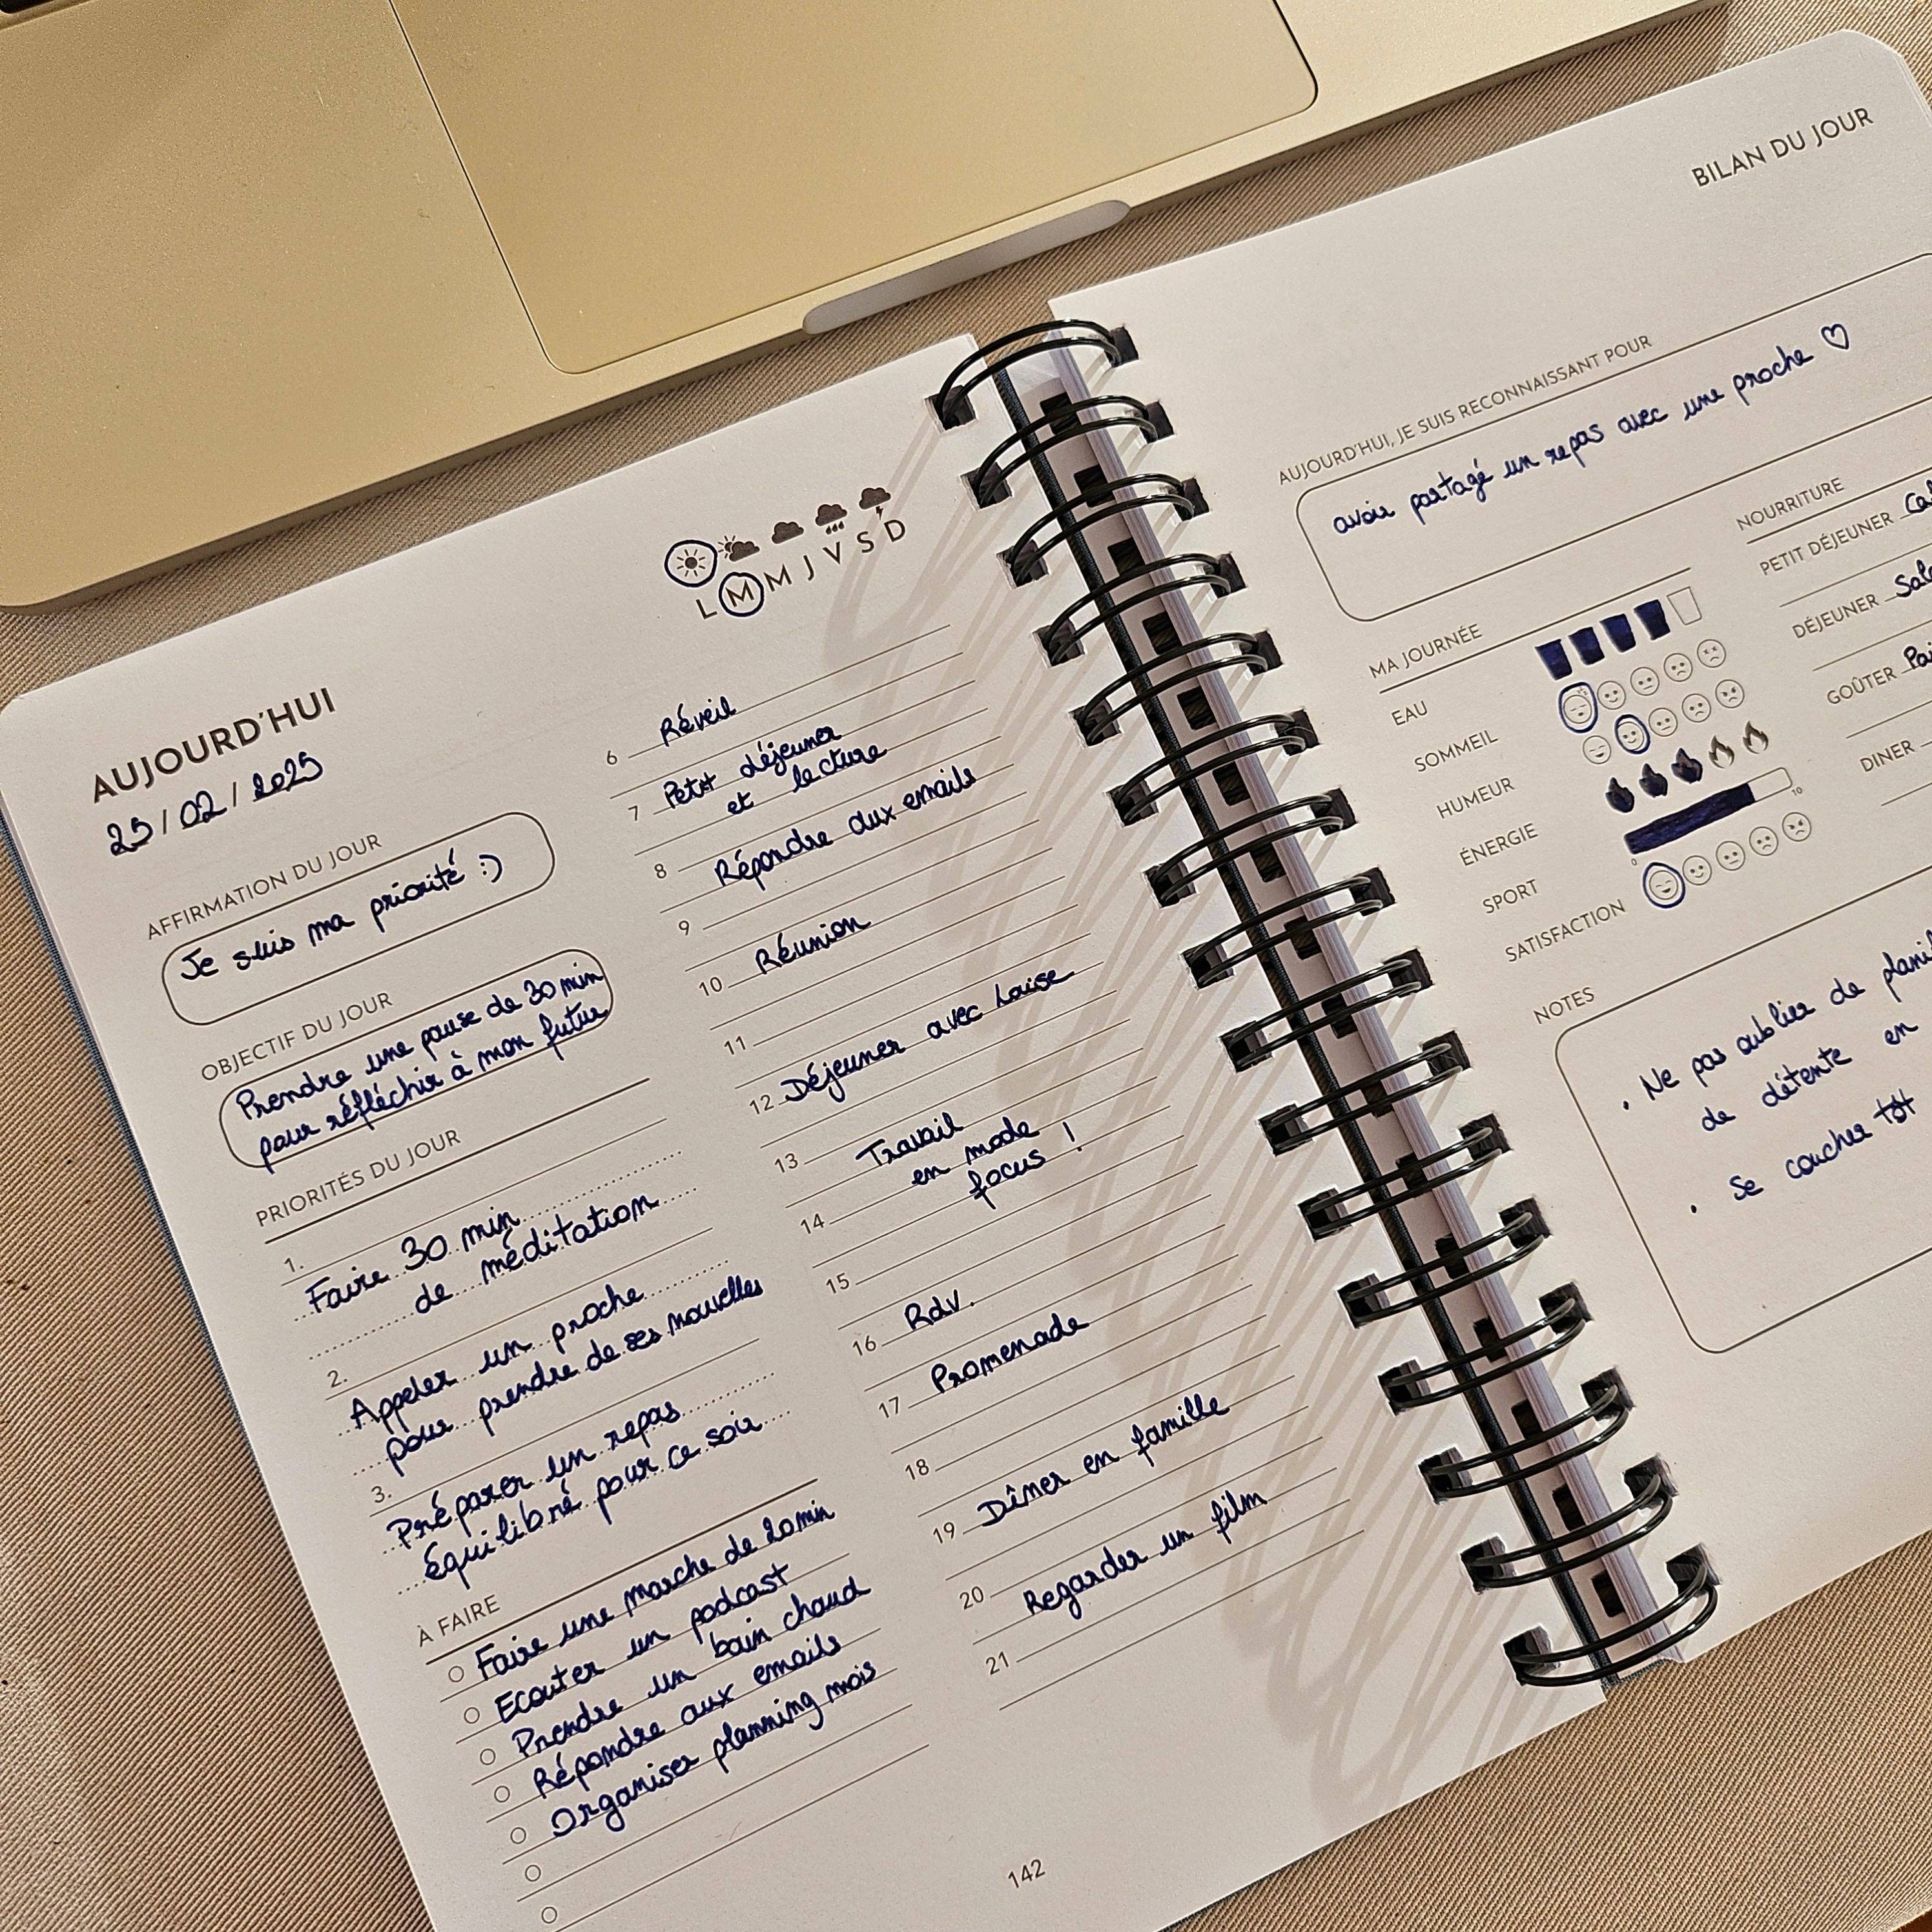 AUJOURD'HUI
25/02/2025
AFFIRMATION DU JOUR
Je suis ma priorité :)
OBJECTIF DU JOUR
Prendre une pause de 30 min
pour réfléchir à mon futur
PRIORITÉS DU JOUR
1.
Faire 30 min
de méditation
2.
Appeler un proche
pour prendre de ses nouvelles
3.
Préparer un repas
équilibré pour ce soir
À FAIRE
Faire une marche de 20min
Ecouter un podcast
Prendre un bain chaud
Répondre aux emails
Organiser planning mois
L M M J V S D
6 Réveil
7 Petit déjeuner
et lecture
8 Répondre aux emails
9
10 Réunion
11
12 Déjeuner avec Loise
13 Travail
en mode
14 focus !
15
16 Rdv.
17 Promenade
18
19 Dîner en famille
20 Regarder un film
21
142
BILAN DU JOUR
AUJOURD'HUI, JE SUIS RECONNAISSANT POUR
avoir partagé un repas avec une proche ♡
MA JOURNÉE
EAU
SOMMEIL
HUMEUR
ÉNERGIE
SPORT
0 10
SATISFACTION
NOURRITURE
PETIT DÉJEUNER
DÉJEUNER
GOÛTER
DINER
NOTES
. Ne pas oublier de
de détente en
. Se coucher tôt